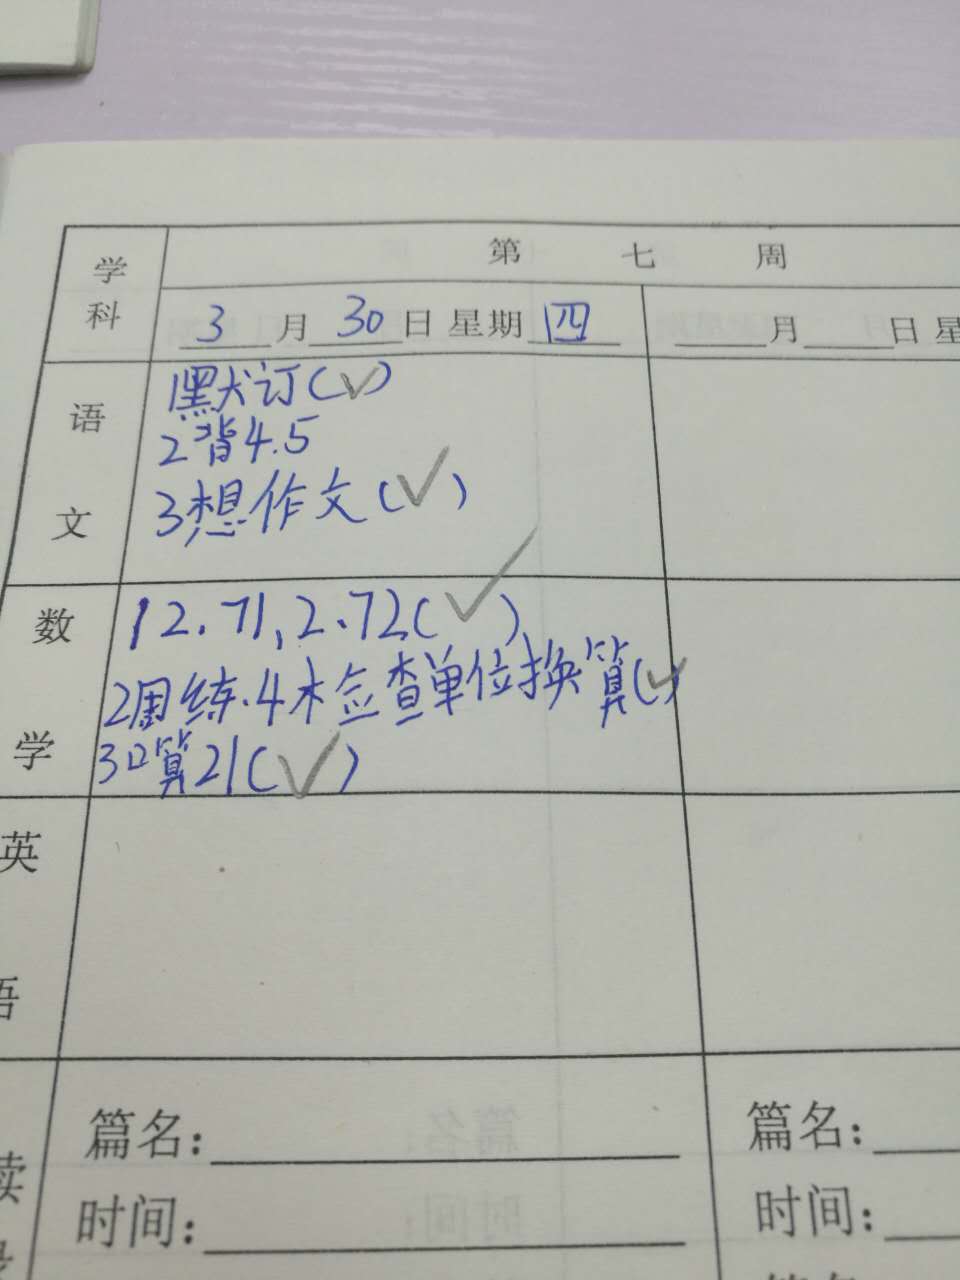 学科
第 七 周
3月30日 星期四
月 日 星
语文
1默订(✓)
2背4.5
3想作文(✓)
数学
1 2.71,2.72(✓)
2周练.4 检查单位换算(✓)
3口算21(✓)
英语
篇名:
篇名:
时间:
时间: